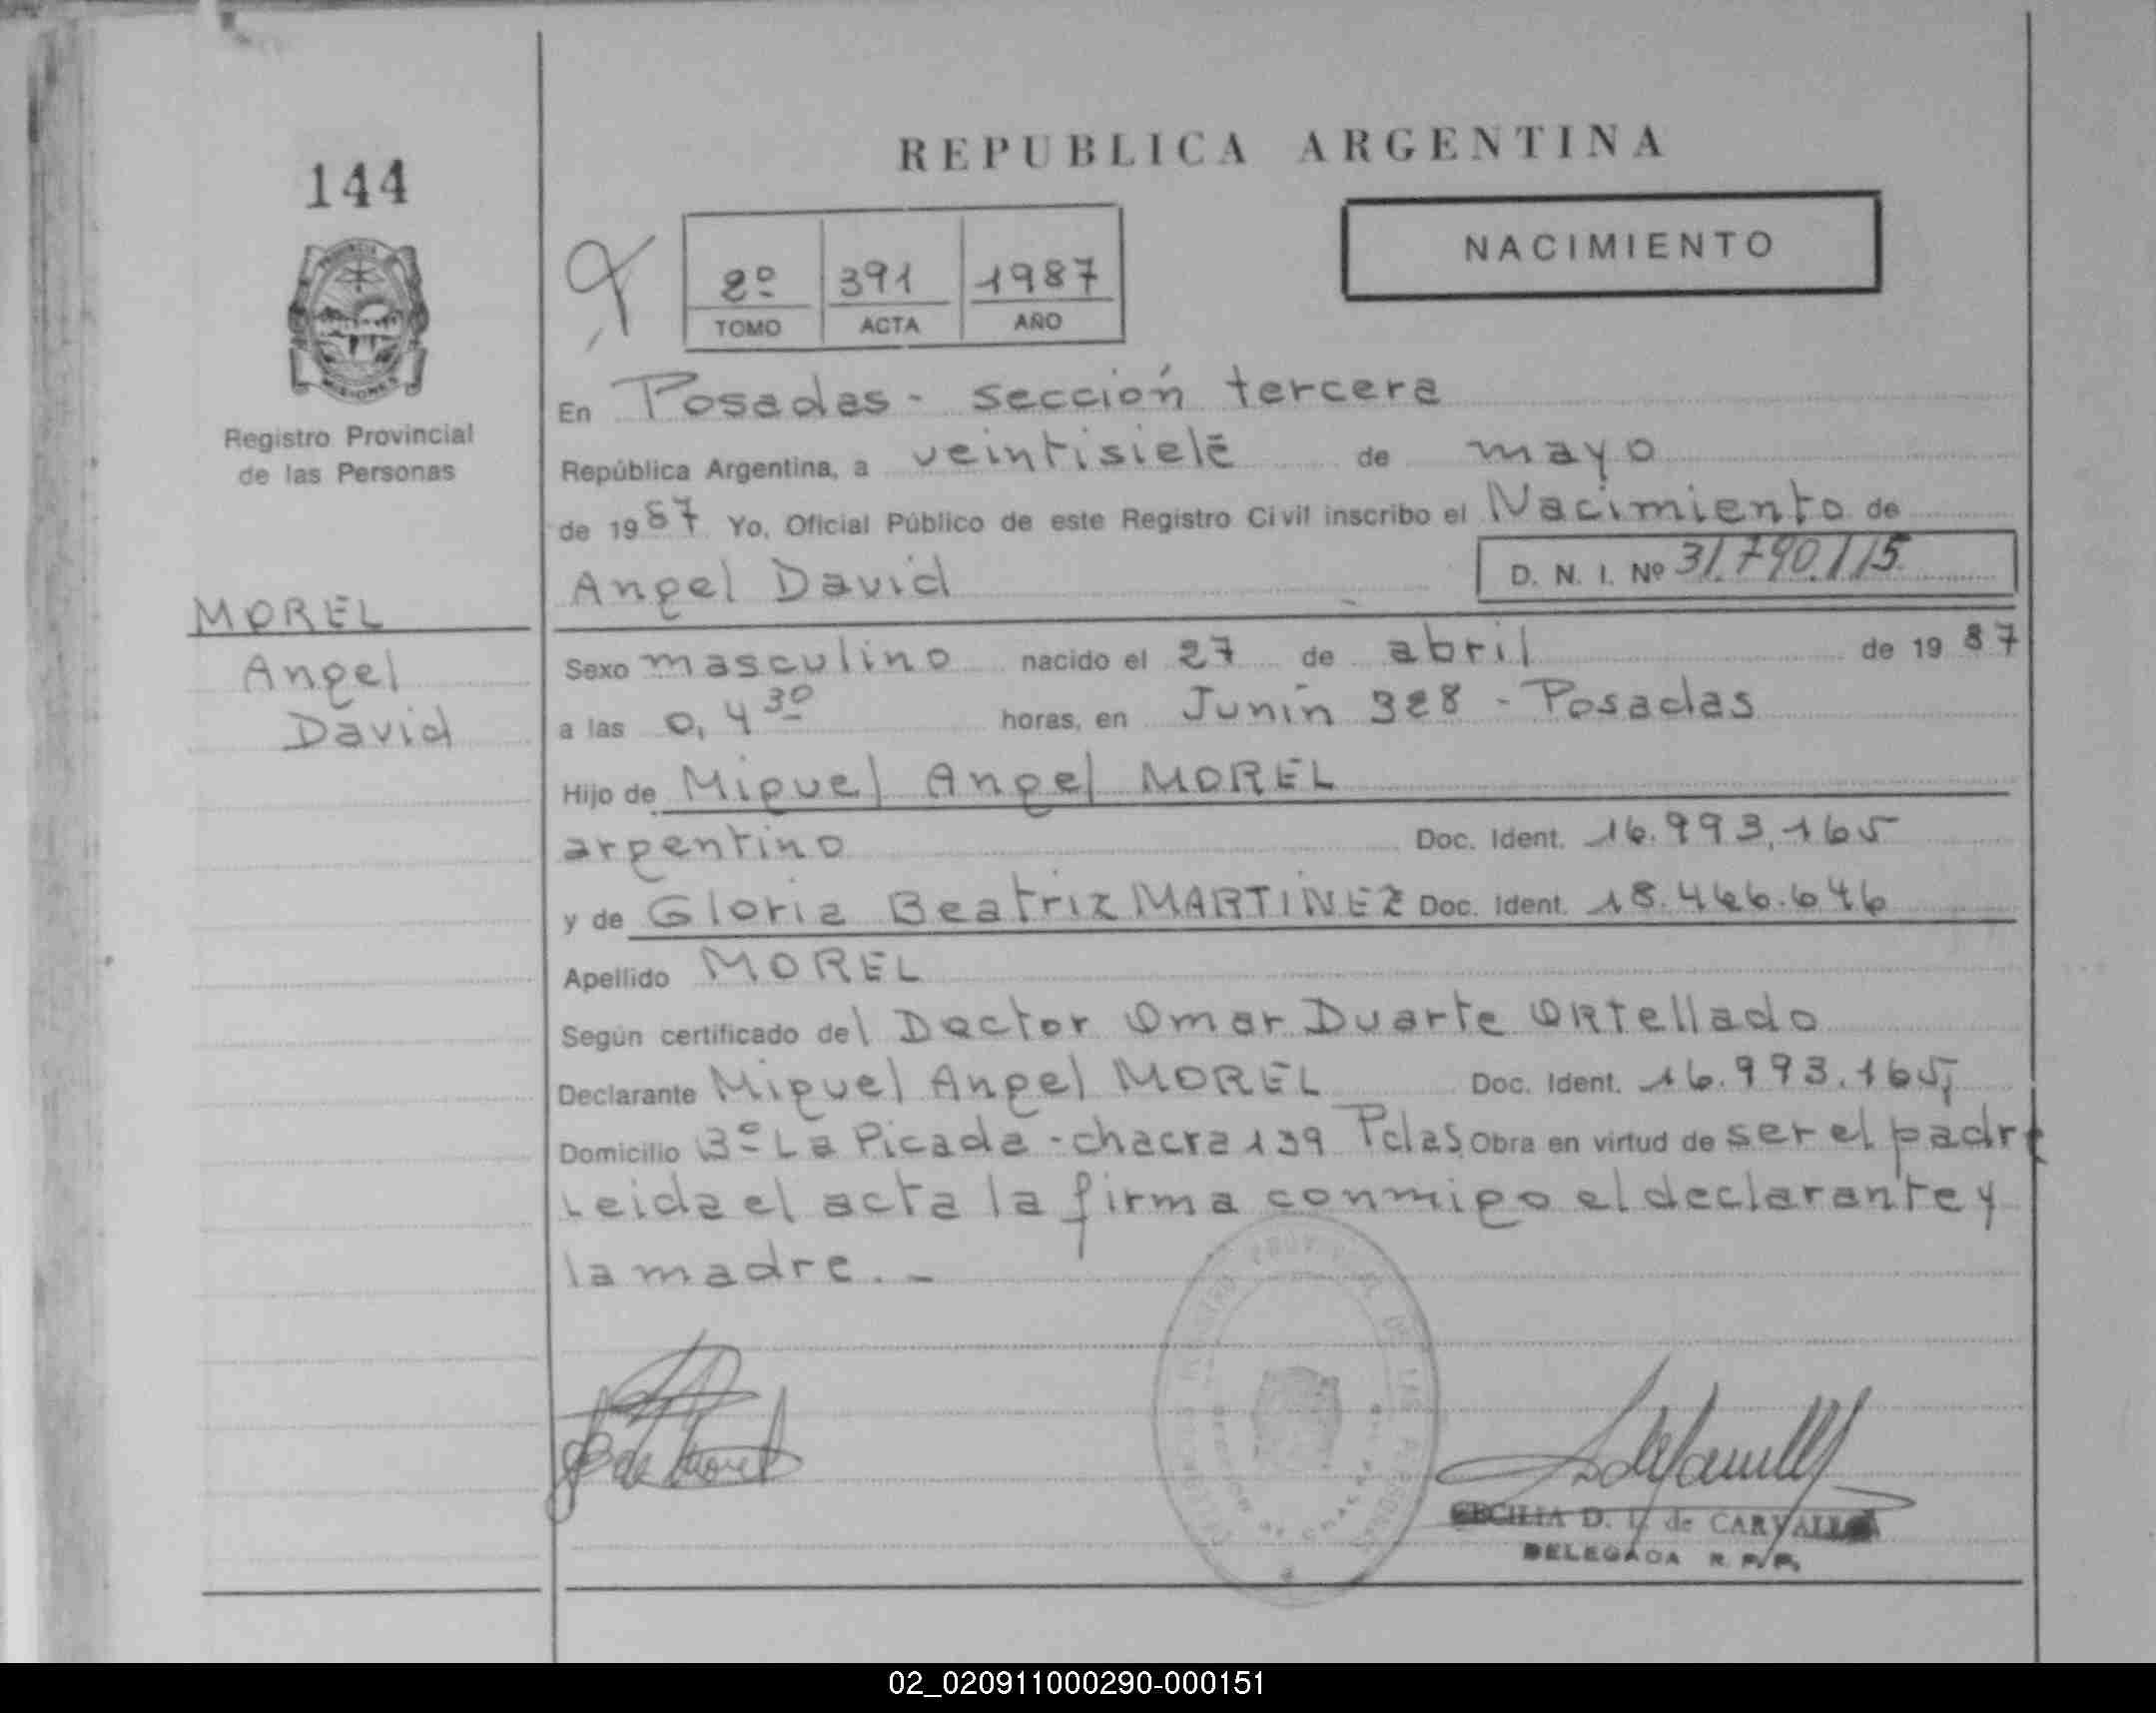 REPUBLICA ARGENTINA
144
NACIMIENTO
2º 391 1987
TOMO ACTA AÑO
Registro Provincial
de las Personas
En Posadas - sección tercera
República Argentina, a veintisiete de mayo
de 1987 Yo, Oficial Público de este Registro Civil inscribo el Nacimiento de
Angel David D. N. I. Nº 31.790.115
MOREL
Angel
David
Sexo masculino nacido el 27 de abril de 1987
a las 0,4 30 horas, en Junín 328 - Posadas
Hijo de Miguel Angel MOREL
argentino Doc. Ident. 16.993.165
y de Gloria Beatriz MARTINEZ Doc. Ident. 18.466.646
Apellido MOREL
Según certificado del Doctor Omar Duarte ORtellado
Declarante Miguel Angel MOREL Doc. Ident. 16.993.165,
Domicilio Bº La Picada - chacra 139 Pdas. Obra en virtud de ser el padre
Leida el acta la firma conmigo el declarante y
la madre. -
CECILIA D. de CARVALLO
DELEGADA R. P. P.
02_020911000290-000151